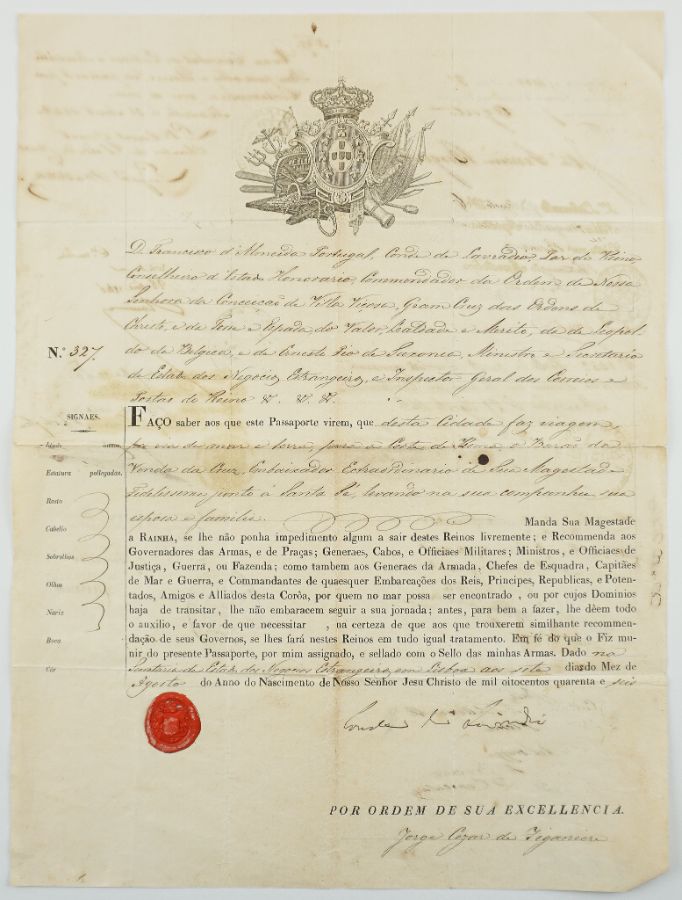 D. Francisco d'Almeida Portugal, Conde de Lavradio, Par do Reino,
Conselheiro d'Estado Honorario, Commendador da Ordem de Nossa
Senhora da Conceição de Villa Viçosa, Gram Cruz das Ordens de
Christo, e da Torre e Espada, do Valor, Lealdade e Merito, da de Leopol-
do da Belgica, e da de Ernesto Pio de Saxonia, Ministro e Secretario
de Estado dos Negocios Estrangeiros, e Inspector Geral dos Correios e
Postas do Reino &. &. &.
N.º 327.
SIGNAES.
Idade annos.
Estatura pollegadas.
Rosto
Cabello
Sobrolhos
Olhos
Nariz
Boca
Côr
FAÇO saber aos que este Passaporte virem, que desta Cidade faz viagem,
por via de mar e terra, para a Corte de Roma, o Barão da
Venda da Cruz, Embaixador Extraordinario de Sua Magestade
Fidelissima junto á Santa Sé, levando na sua companhia sua
esposa e familia. Manda Sua Magestade
a RAINHA, se lhe não ponha impedimento algum a sair destes Reinos livremente; e Recommenda aos
Governadores das Armas, e de Praças; Generaes, Cabos, e Officiaes Militares; Ministros, e Officiaes de
Justiça, Guerra, ou Fazenda; como tambem aos Generaes da Armada, Chefes de Esquadra, Capitães
de Mar e Guerra, e Commandantes de quaesquer Embarcações dos Reis, Principes, Republicas, e Poten-
tados, Amigos e Alliados desta Corôa, por quem no mar possa ser encontrado, ou por cujos Dominios
haja de transitar, lhe não embaracem seguir a sua jornada; antes, para bem a fazer, lhe dêem todo
o auxilio, e favor de que necessitar, na certeza de que aos que trouxerem similhante recommen-
dação de seus Governos, se lhes fará nestes Reinos em tudo igual tratamento. Em fé do que o Fiz mu-
nir do presente Passaporte, por mim assignado, e sellado com o Sello das minhas Armas. Dado na
Secretaria de Estado dos Negocios Estrangeiros, em Lisboa aos sete dias do Mez de
Agosto do Anno do Nascimento de Nosso Senhor Jesu Christo de mil oitocentos quarenta e seis
Conde de Lavradio
POR ORDEM DE SUA EXCELLENCIA.
Jorge Cezar de Figaniere